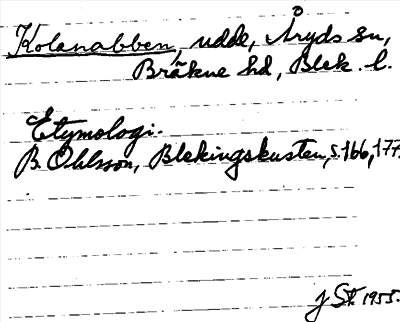 Kolanabben, udde, Åryds sn,
Bräkne hd, Blek. l.
Etymologi.
B. Ohlsson, Blekingskusten, s. 166, 177.
J St. 1955.